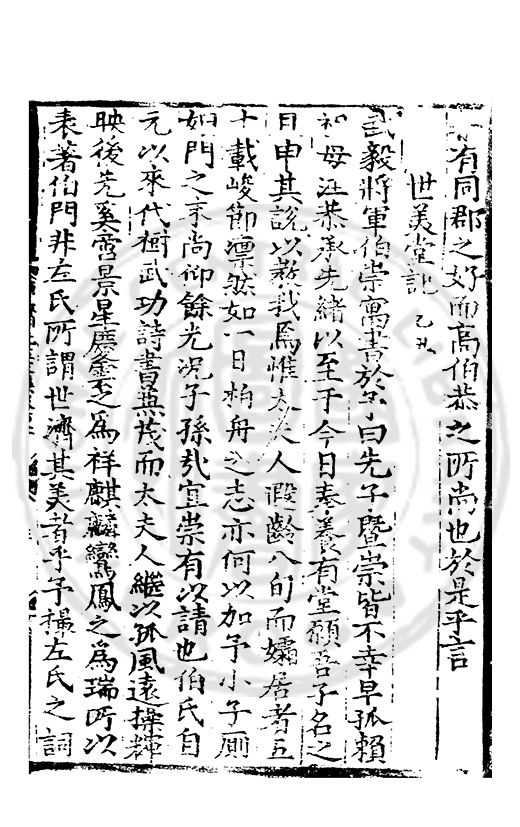 有同郡之好而高伯恭之所尚也於是乎言
世美堂記 乙丑
武毅將軍伯崇寓書於予曰先子暨崇皆不幸早孤賴
祖母汪恭承先緒以至于今日奉養有堂願吾子名之
日申其說以教我焉惟太夫人遐齡八旬而孀居者五
十載峻節凜然如一日柏舟之志亦何以加予小子厠
姻門之末尚仰餘光況子孫哉宜崇有以請也伯氏自
元以來代樹武功詩書兼茂而太夫人繼以孤風遠操輝
映後先奚啻景星慶雲之為祥麒麟鸞鳳之為瑞所以
表著伯門非左氏所謂世濟其美者乎予撮左氏之詞